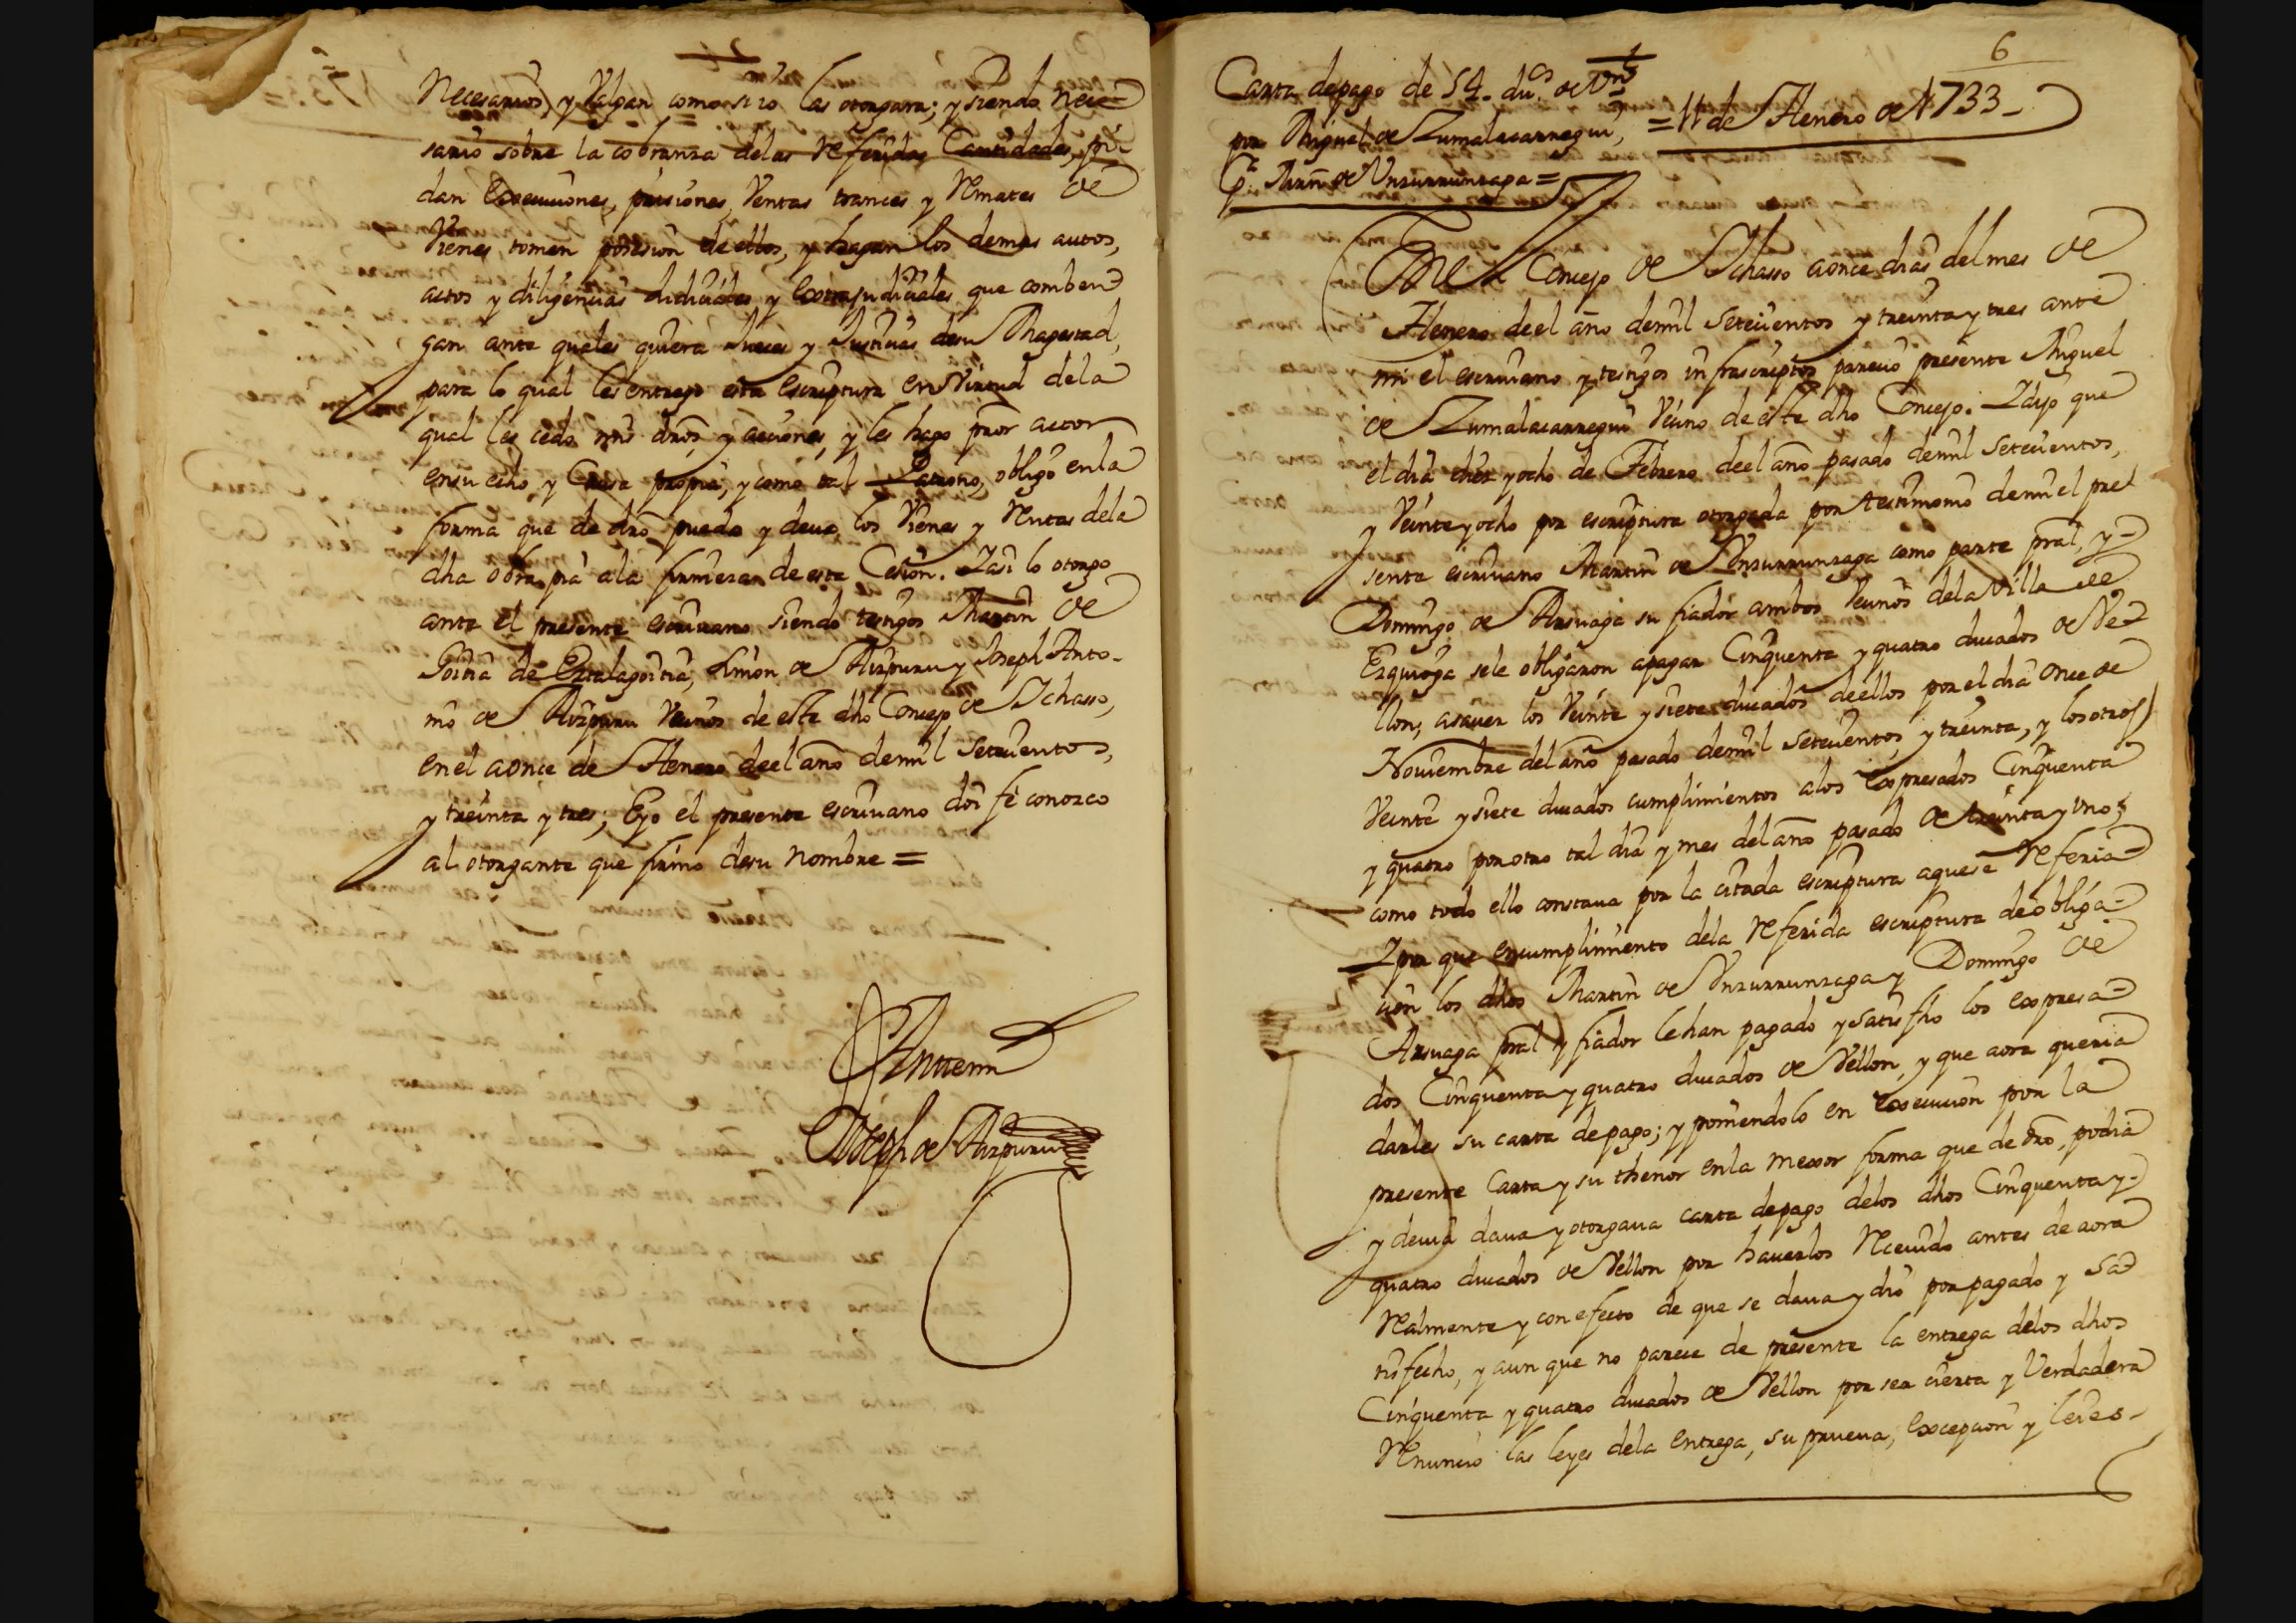 necesarios, y valgan como si io las otorgara; y siendo nece
sario sobre la cobranza delas referidas Cantidades, pi
dan execuciones, prisiones, Ventas trances y remates de
Vienes, tomen posesion de ellos, y hagan los demas autos,
actos y diligencias Judiciales y extrajudiciales que comben
gan ante quales quiera Jueces y Justicias desu Magestad,
para lo qual les entrego esta escriptura en Virtud dela
qual les cedo mis dros, y acciones, y les hago pror actor
ensu echo y Causa propia; y como tal Patrono, obligo enla
forma que de dro puedo y devo, los Vienes y rentas dela
dha obra pia ala firmeza de esta Cesion. Y asi lo otorgo
ante el presente escrivano siendo testigos Martin de
Goitia de Eztalagoitia, Simon de Aizpuru y Joseph Anto-
nio de Aizpuru Vecinos de este dho Concejo de Ichasso,
en el a once de Henero de el año demil Setecientos,
y treinta y tres; E yo el presente escrivano doi fe conozco
al otorgante que firmo desu nombre =
Ante mi
Joseph de Aizpuru
6
Carta depago de 54. du.os de Von
por Miguel de Zumalacarregui,
Pa. Mrn de Unzurrunzaga =
= 11 de Henero de 1733 -
En el Concejo de Ichasso a once dias del mes de
Henero de el año demil Setecientos y treinta y tres ante
mi el escrivano y testigos infrascriptos parecio presente Miguel
de Zumalacarregui Vecino de este dho Concejo. Y dijo que
el dia diez y ocho de Febrero de el año pasado demil setecientos,
y Veinte y ocho por escriptura otorgada por testimonio demi el pre
sente escrivano Martin de Unzurrunzaga como parte pral, y-
Domingo de Arsuaga su fiador ambos Vecinos dela Villa de
Ezquioga sele obligaron apagar Cinquenta y quatro ducados de Ve
llon; asaver los Veinte y siete ducados de ellos por el dia once de
Noviembre del año pasado demil setecientos y treinta, y los otros
Veinte y siete ducados cumplimientos alos expresados Cinquenta
y quatro por otro tal dia y mes del año pasado de treinta y uno;
como todo ello constava por la citada escriptura aque se referia
Y por que en cumplimiento dela referida escriptura de obliga-
cion los dhos Martin de Unzurrunzaga y Domingo de
Arsuaga pral y fiador le han pagado y satisfho los expresa-
dos Cinquenta y quatro ducados de Vellon, y que aora queria
darles su carta depago; y poniendolo en execucion por la
presente Carta y su thenor enla mexor forma que de dro, podia
y devia dava y otorgava carta depago delos dhos Cinquenta y-
quatro ducados de Vellon por haverlos recevido antes de aora
realmente y con efecto de que se dava y dio por pagado y sa
tisfecho, y aun que no parece de presente la entrega delos dhos
Cinquenta y quatro ducados de Vellon por ser cierta y Verdadera
renuncio las leyes dela entrega, su prueva, excepcion y leies-